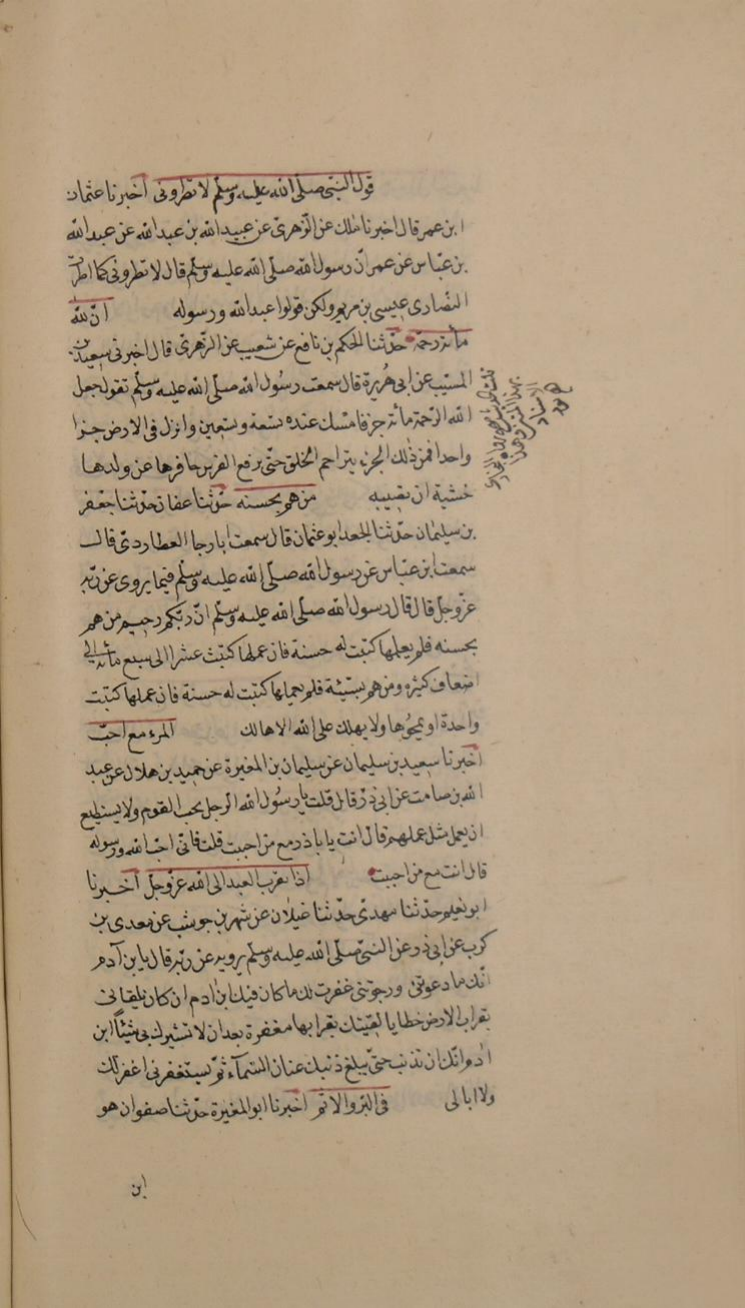 قول النبى صلى الله عليه وسلم لا تطرونى اخبرنا عثمان
ابن عمر قال اخبرنا ملك عن الزهرى عن عبيد الله بن عبد الله عن عبد الله
بن عباس عن عمر ان رسول الله صلى الله عليه وسلم قال لا تطرونى كما اطرت
النصارى عيسى بن مريم ولكن قولوا عبد الله ورسوله ان لله
مائة رحمة حدثنا الحكم بن نافع عن شعيب عن الزهرى قال اخبرنى سعيد بن
المسيب عن ابى هريرة قال سمعت رسول الله صلى الله عليه وسلم تقول جعل
الله الرحمة مائة جزء فامسك عنده تسعة وتسعين وانزل فى الارض جزا
واحدا فمن ذلك الجزء يتراحم الخلق حتى ترفع الفرس حافرها عن ولدها
خشية ان تصيبه من هم بحسنه حدثنا عفان حدثنا جعفر
بن سليمان حدثنا الجعد ابو عثمان قال سمعت ابا رجا العطاردى قال
سمعت ابن عباس عن رسول الله صلى الله عليه وسلم فيما يروى عن ربه
عز وجل قال قال رسول الله صلى الله عليه وسلم ان ربكم رحيم من هم
بحسنه فلم يعملها كتبت له حسنة فان عملها كتبت عشرا الى سبع مائة الى
اضعاف كثيره ومن هم بسيئة فلم يعملها كتبت له حسنة فان عملها كتبت
واحدة او يمحوها ولا يهلك على الله الا هالك المرء مع احب
اخبرنا سعيد بن سليمان عن سليمان بن المغيرة عن حميد بن هلال عن عبد
الله بن صامت عن ابى ذر قال قلت يا رسول الله الرجل يحب القوم ولا يستطيع
ان يعمل مثل عملهم قال انت يا باذر مع من احببت قلت فانى احب الله ورسوله
قال انت مع من احببت اذا تقرب العبد الى الله عز وجل اخبرنا
ابو نعيم حدثنا مهدى حدثنا غيلان عن شهر بن حوشب عن معدى بن
كرب عن ابى ذر عن النبى صلى الله عليه وسلم يرويه عن ربه قال يا ابن آدم
انك ما دعوتنى ورجوتنى غفرت لك ما كان فيك ابن ادم ان كان تلقانى
بقراب الارض خطايا لقيتك بقرابها مغفرة بعد ان لا تشرك بى شيئا ابن
ادم انك ان تذنب حتى يبلغ ذنبك عنان السماء ثم تستغفرنى اغفر لك
ولا ابالى فى البر والاثم اخبرنا ابو المغيرة حدثنا صفوان هو
ابن